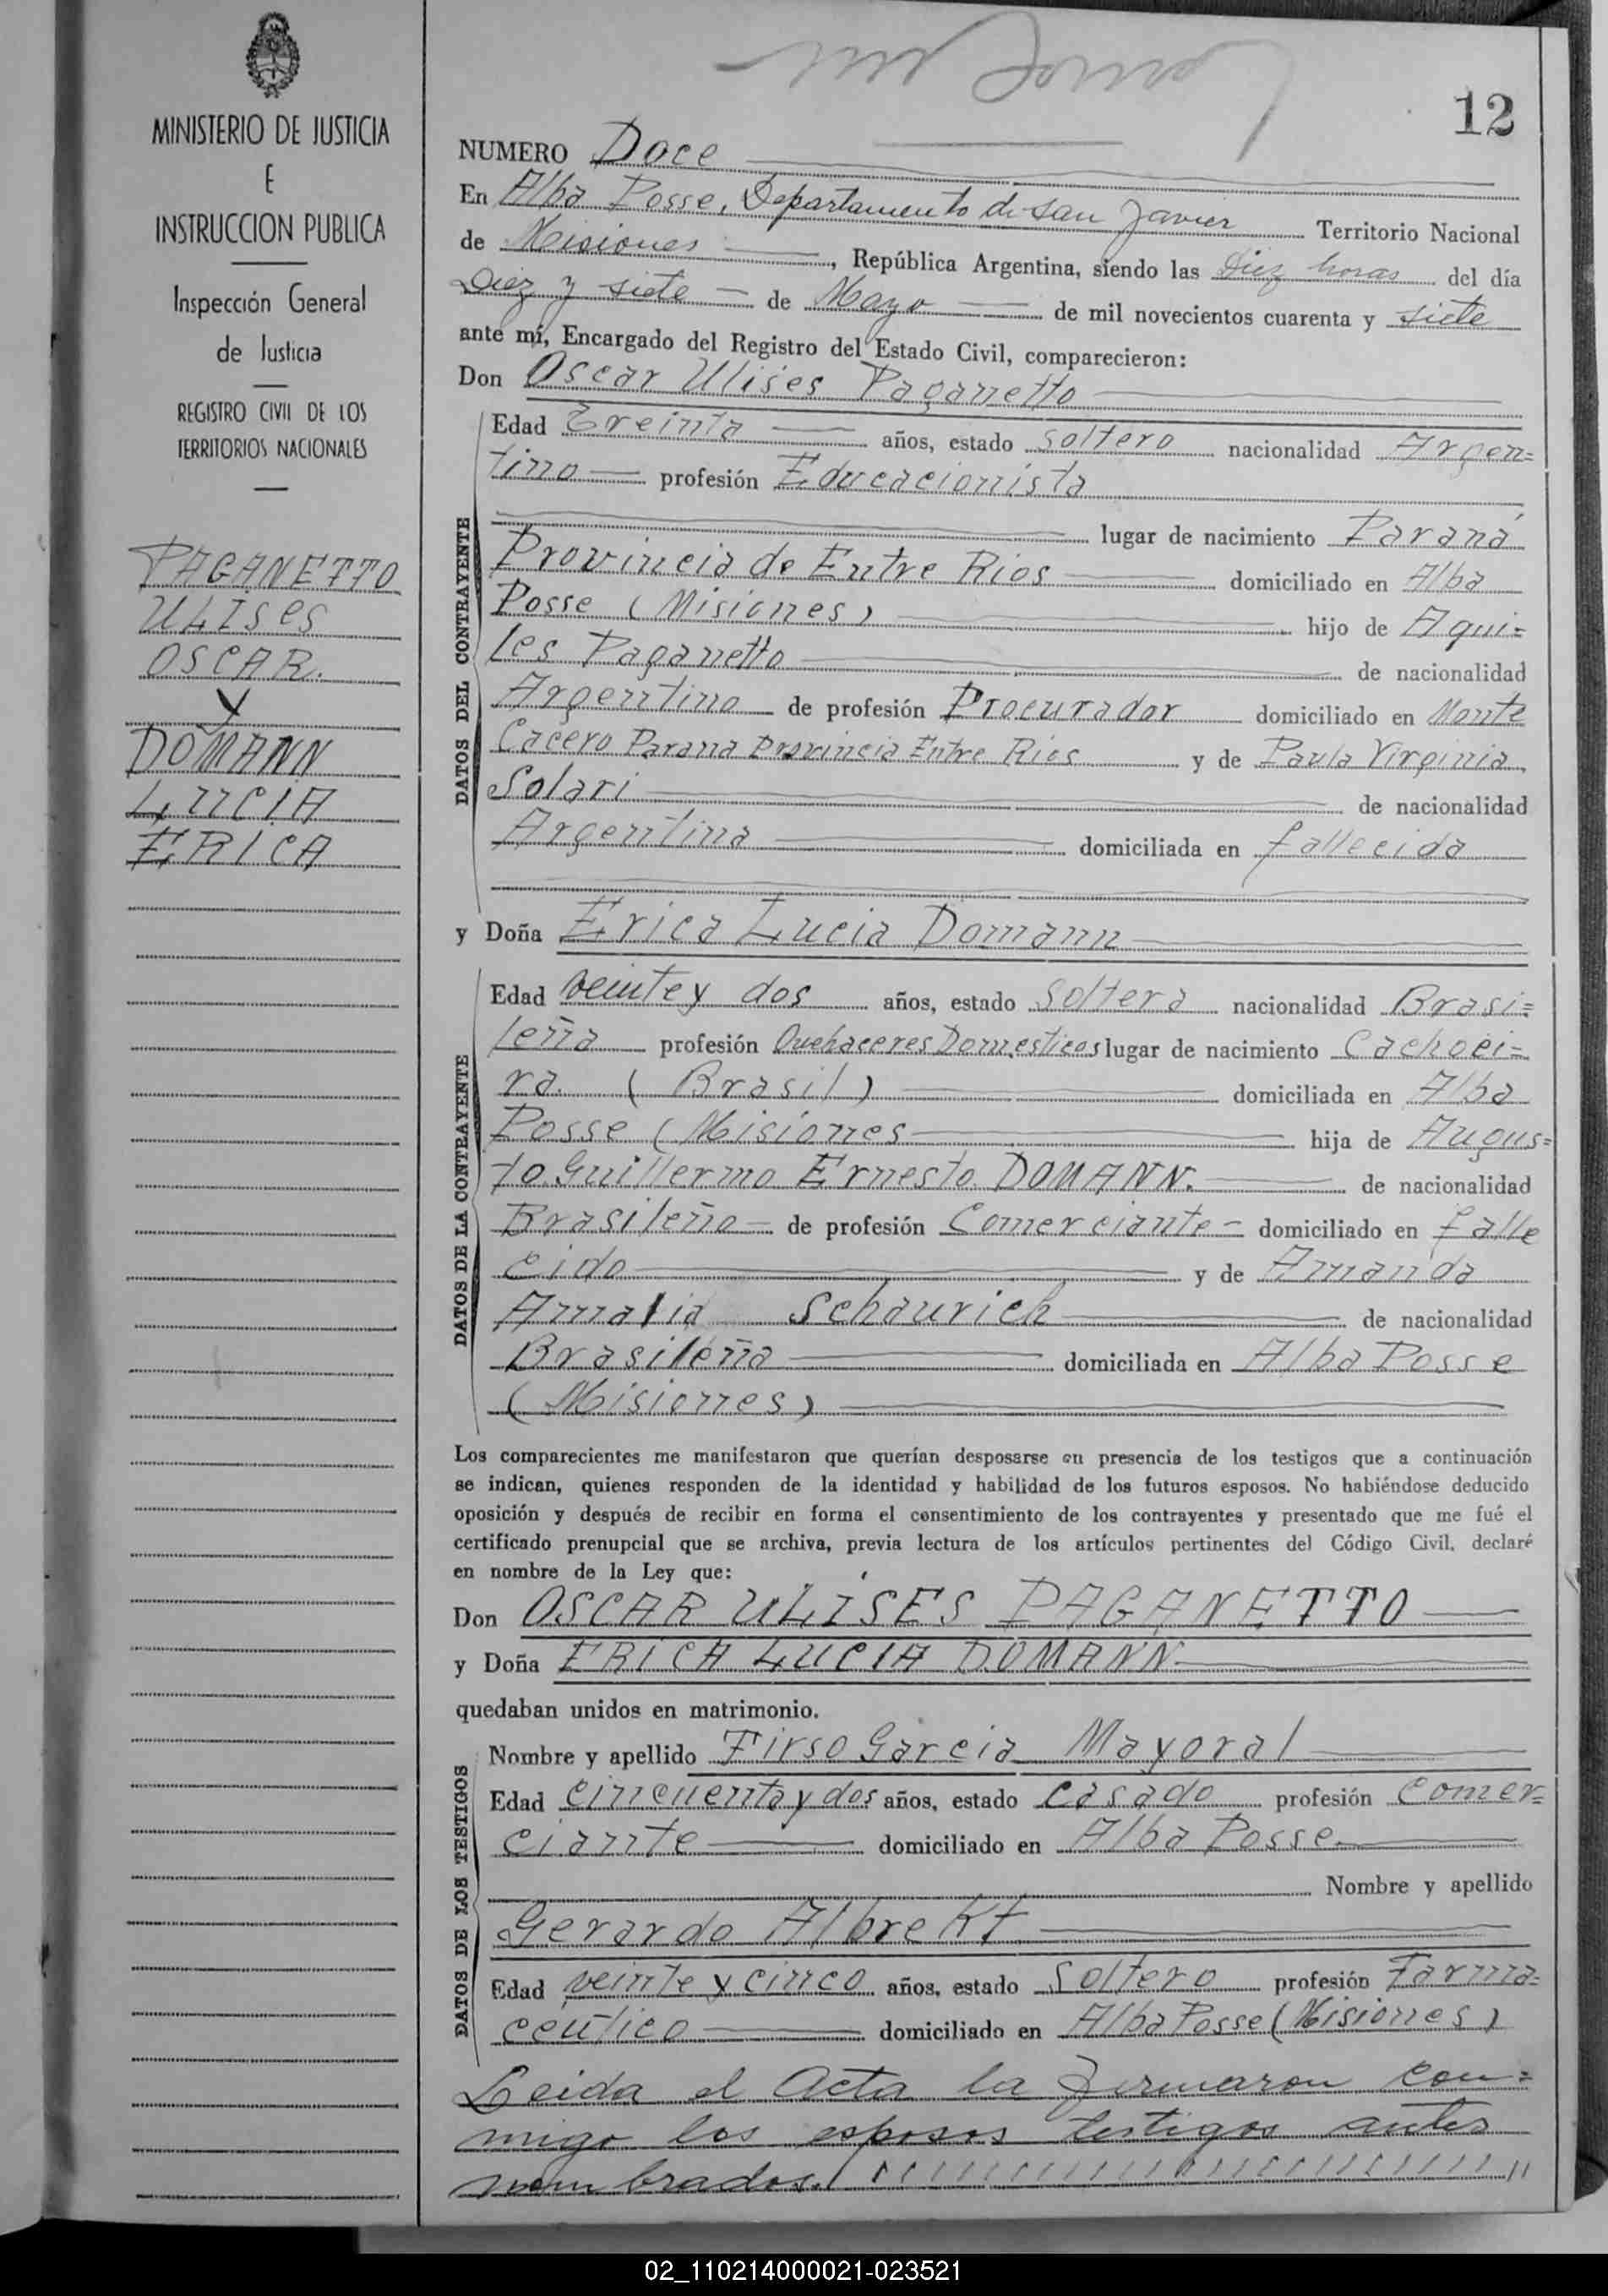 MINISTERIO DE JUSTICIA
E
INSTRUCCION PUBLICA
Inspección General
de Justicia
REGISTRO CIVIL DE LOS
TERRITORIOS NACIONALES
PAGANETTO
ULISES
OSCAR.
Y
DOMANN
LUCIA
ERICA
12
NUMERO Doce
En Alba Posse, Departamento de San Javier Territorio Nacional
de Misiones, República Argentina, siendo las Diez horas del día
Diez y siete de Mayo de mil novecientos cuarenta y siete
ante mí, Encargado del Registro del Estado Civil, comparecieron:
Don Oscar Ulises Paganetto
DATOS DEL CONTRAYENTE
Edad Treinta años, estado soltero nacionalidad Argen=
tino profesión Educacionista
lugar de nacimiento Paraná
Provincia de Entre Rios domiciliado en Alba
Posse (Misiones) hijo de Aqui=
les Paganetto de nacionalidad
Argentino de profesión Procurador domiciliado en Monte
Cacero Parana Provincia Entre Rios y de Paula Virginia
Solari de nacionalidad
Argentina domiciliada en fallecida
y Doña Erica Lucia Domann
DATOS DE LA CONTRAYENTE
Edad veinte y dos años, estado Soltera nacionalidad Brasi=
leña profesión Quehaceres Domesticos lugar de nacimiento Cachoei=
ra. (Brasil) domiciliada en Alba
Posse (Misiones hija de Augus=
to Guillermo Ernesto DOMANN. de nacionalidad
Brasileño de profesión Comerciante domiciliado en falle
cido y de Amanda
Amalia Schaurich de nacionalidad
Brasileña domiciliada en Alba Posse
(Misiones)
Los comparecientes me manifestaron que querían desposarse en presencia de los testigos que a continuación
se indican, quienes responden de la identidad y habilidad de los futuros esposos. No habiéndose deducido
oposición y después de recibir en forma el consentimiento de los contrayentes y presentado que me fué el
certificado prenupcial que se archiva, previa lectura de los artículos pertinentes del Código Civil, declaré
en nombre de la Ley que:
Don OSCAR ULISES PAGANETTO
y Doña ERICA LUCIA DOMANN
quedaban unidos en matrimonio.
DATOS DE LOS TESTIGOS
Nombre y apellido Firso Garcia Mayoral
Edad cincuenta y dos años, estado casado profesión Comer=
ciante domiciliado en Alba Posse
Nombre y apellido
Gerardo Albrekt
Edad veinte y cinco años, estado Soltero profesión Farma=
ceútico domiciliado en Alba Posse (Misiones)
Leida el Acta la firmaron con=
migo los esposos testigos antes
nombrados.
02_110214000021-023521